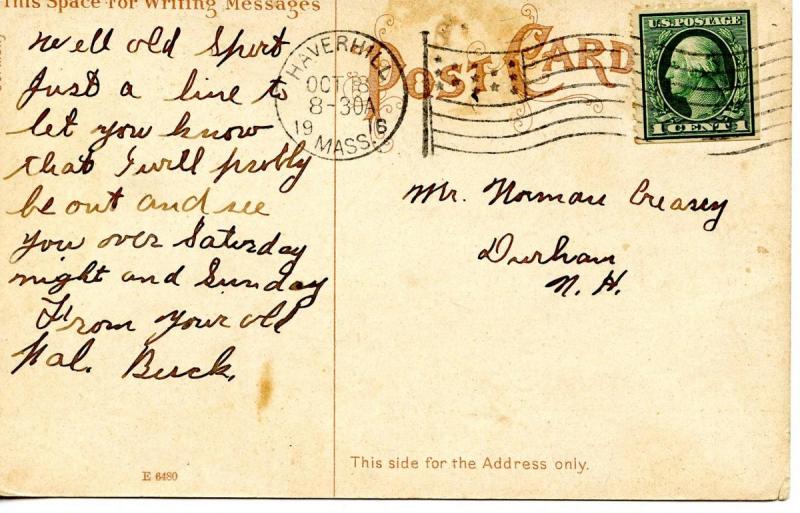 This Space For Writing Messages
Well old Sport
Just a line to
let you know
that I will probly
be out and see
you over Saturday
night and Sunday
From your old
Pal. Buck.
E 6480
POST CARD
HAVERHILL
OCT 18
8-30A
1916
MASS.
U.S. POSTAGE
1 CENT 1
Mr. Norman Creasey
Durham
N. H.
This side for the Address only.